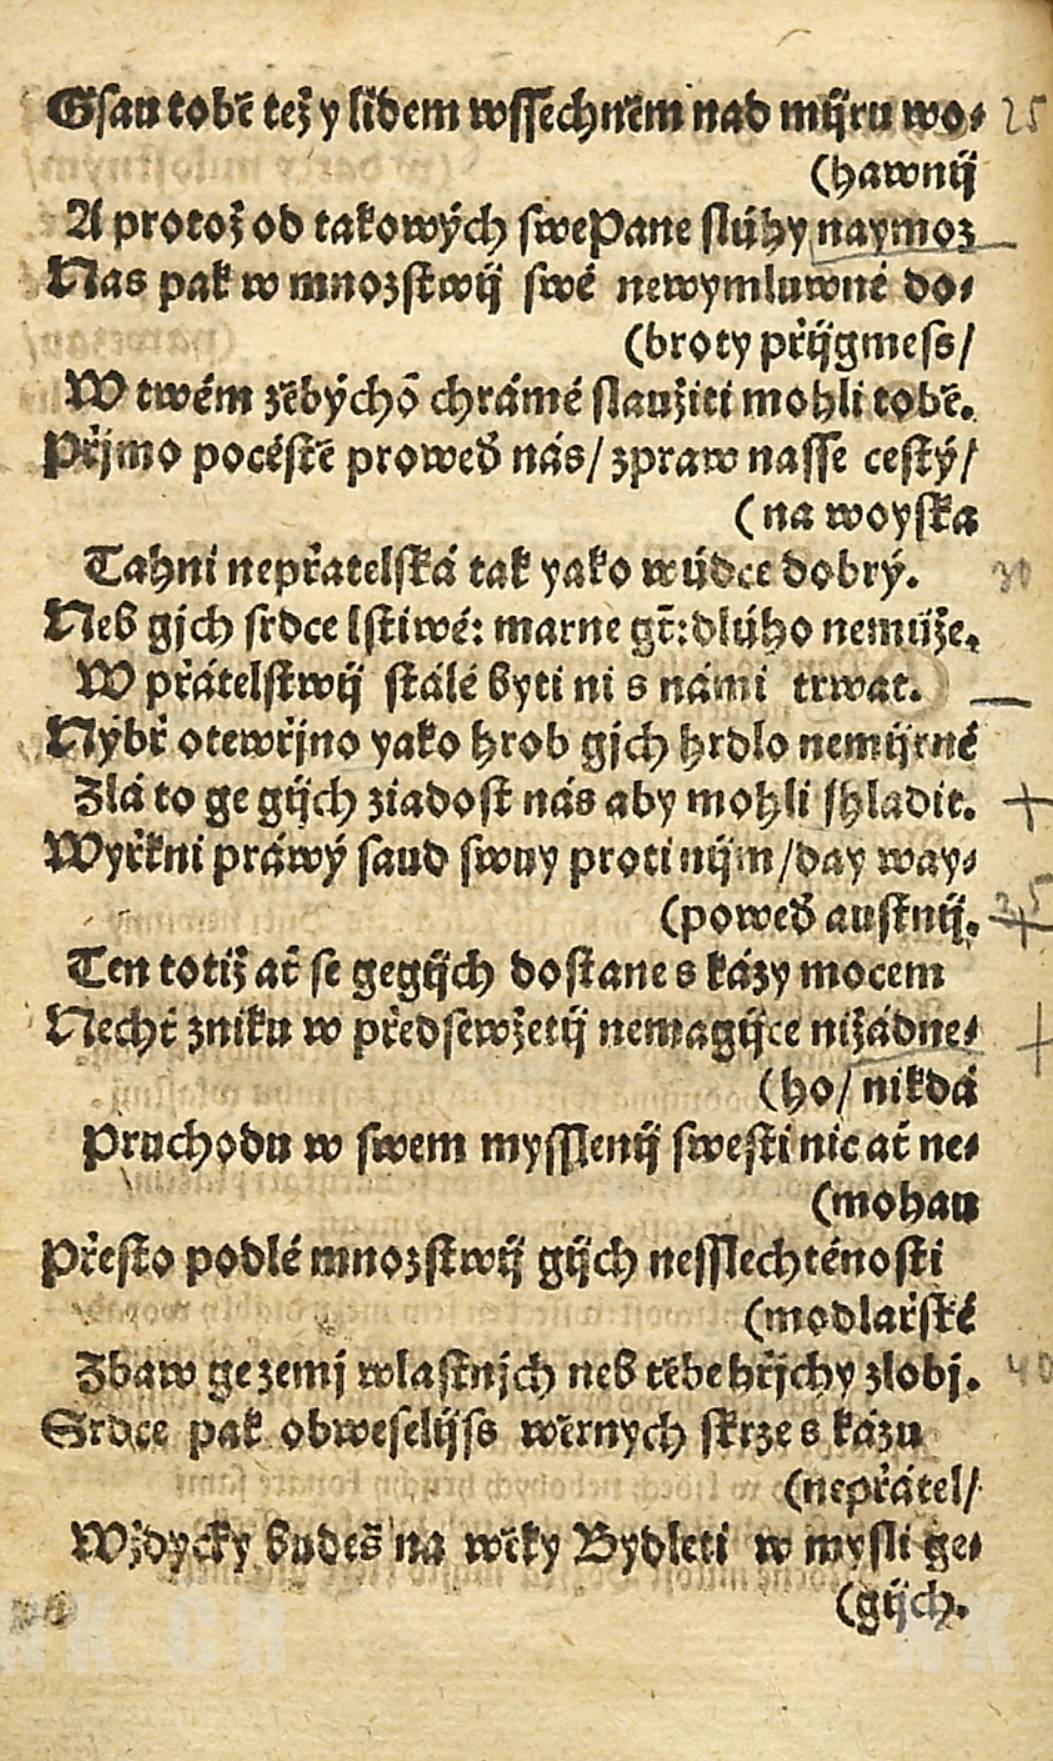 Gsau tobě tež y lidem wssechněm nad mijru wo- 25
(hawnij
A protož od takowých swe Pane slúhy naymoz
Nas pak w mnozstwij swé newymluwné do-
(broty přijgmess/
W twém žěbýchō chrámé slaužiti mohli tobě.
Přjmo pocéstě proweď nás/ zpraw nasse cestý/
(na woyska
Tahni nepřatelská tak yako wůdce dobrý. 30
Neb gjch srdce lstiwé: marne gt̃: dlúho nemůže.
W přátelstwij stálé byti ni s námi trwat.
Nýbř otewřjno yako hrob gjch hrdlo nemijrné
Zlá to ge gijch ziadost nás aby mohli shladit.
Wyřkni práwý saud swuy proti nijm/ day way-
(poweď austnij. 35
Ten totiž ať se gegijch dostane s kázy mocem
Nechť zniku w předsewžetij nemagijce nižádne-
(ho/ nikdá
Pruchodu w swem mysslenij swesti nic ať ne-
(mohau
Přesto podlé mnozstwij gijch nesslechténosti
(modlařské
Zbaw ge zemj wlastnjch neb těbe hřjchy zlobj. 40
Srdce pak obweselijss wěrnych skrze s kázu
(nepřátel/
Wždycky budeš na wěky Bydleti w mysli ge-
(gijch.